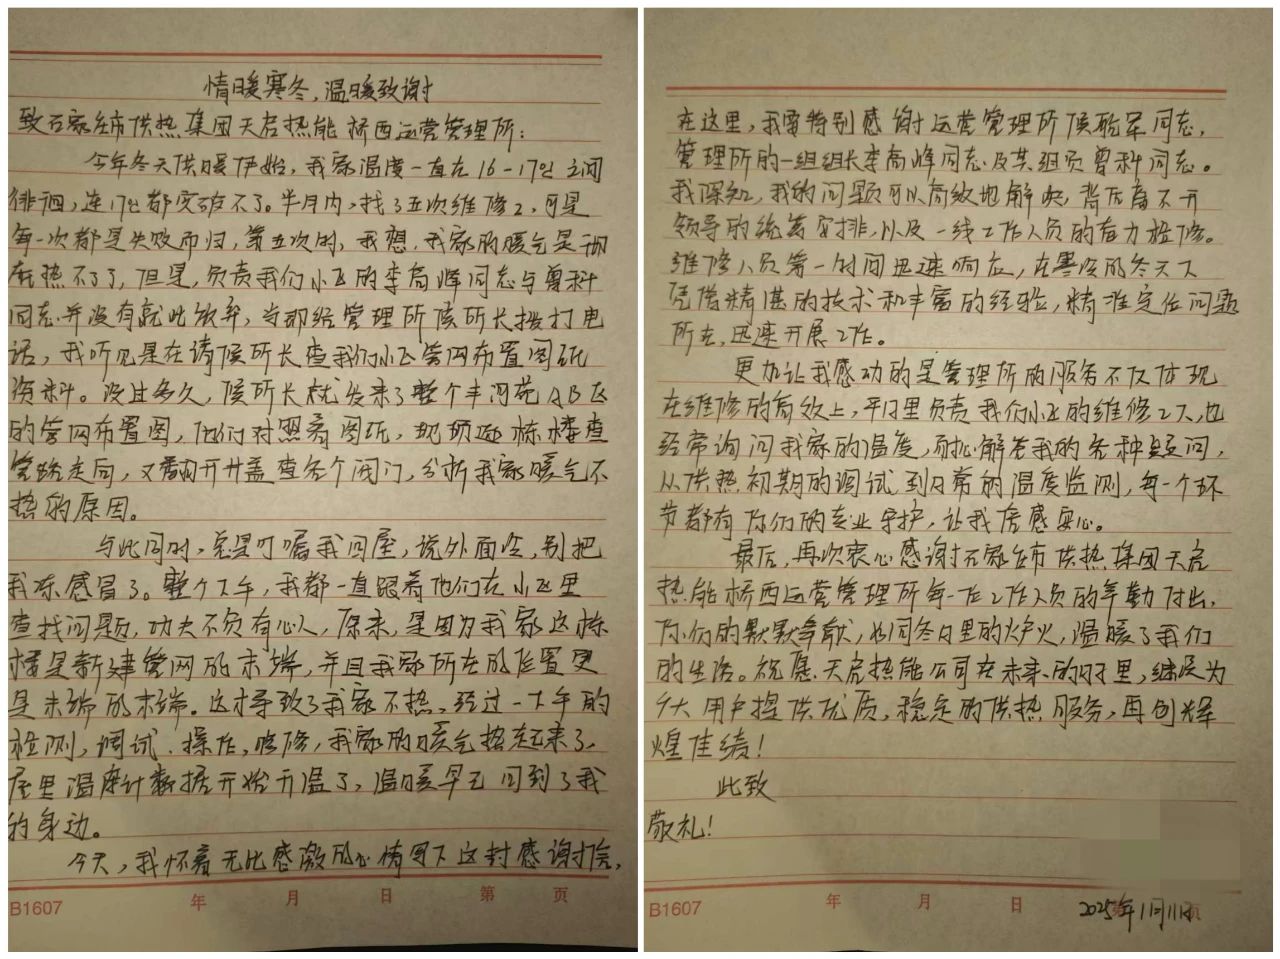 情暖寒冬,温暖致谢
致石家庄市供热集团天启热能桥西运营管理所:
今年冬天供暖伊始,我家温度一直在16-17℃之间
徘徊,连17℃都突破不了。半月内,找了五次维修工,可是
每一次都是失败而归,第五次时,我想,我家的暖气是彻
底热不了了,但是,负责我们小区的李高峰同志与曾科
同志并没有就此放弃,当即给管理所侯所长拨打电
话,我听见是在请侯所长查我们小区管网布置图纸
资料。没过多久,侯所长就发来了整个丰河苑AB区
的管网布置图,他们对照着图纸,现场逐栋楼查
管路走向,又翻开井盖查各个阀门,分析我家暖气不
热的原因。
与此同时,总是叮嘱我回屋,说外面冷,别把
我冻感冒了。整个下午,我都一直跟着他们在小区里
查找问题,功夫不负有心人,原来,是因为我家这栋
楼是新建管网的末端,并且我家所在的位置更
是末端的末端。这才导致了我家不热,经过一下午的
检测,调试、操作,维修,我家的暖气热起来了,
屋里温度计数据开始升温了,温暖早已回到了我
的身边。
今天,我怀着无比感激的心情写下这封感谢信,
在这里,我要特别感谢运营管理所侯聪军同志,
管理所的一组组长李高峰同志及其组员曾科同志。
我深知,我的问题可以高效地解决,背后离不开
领导的统筹安排,以及一线工作人员的奋力检修。
维修人员第一时间迅速响应,在寒冷的冬天下
凭借精湛的技术和丰富的经验,精准定位问题
所在,迅速开展工作。
更加让我感动的是管理所的服务不仅体现
在维修的高效上,平日里负责我们小区的维修工人,也
经常询问我家的温度,耐心解答我的各种疑问,
从供热初期的调试到日常的温度监测,每一个环
节都有你们的专业守护,让我倍感安心。
最后,再次衷心感谢石家庄市供热集团天启
热能桥西运营管理所每一位工作人员的辛勤付出,
你们的默默奉献,如同冬日里的炉火,温暖了我们
的生活。祝愿天启热能公司在未来的日子里,继续为
广大用户提供优质,稳定的供热服务,再创辉
煌佳绩!
此致
敬礼!
2025年11月11日
年 月 日 第 页
B1607
年 月 日 第 页
B1607